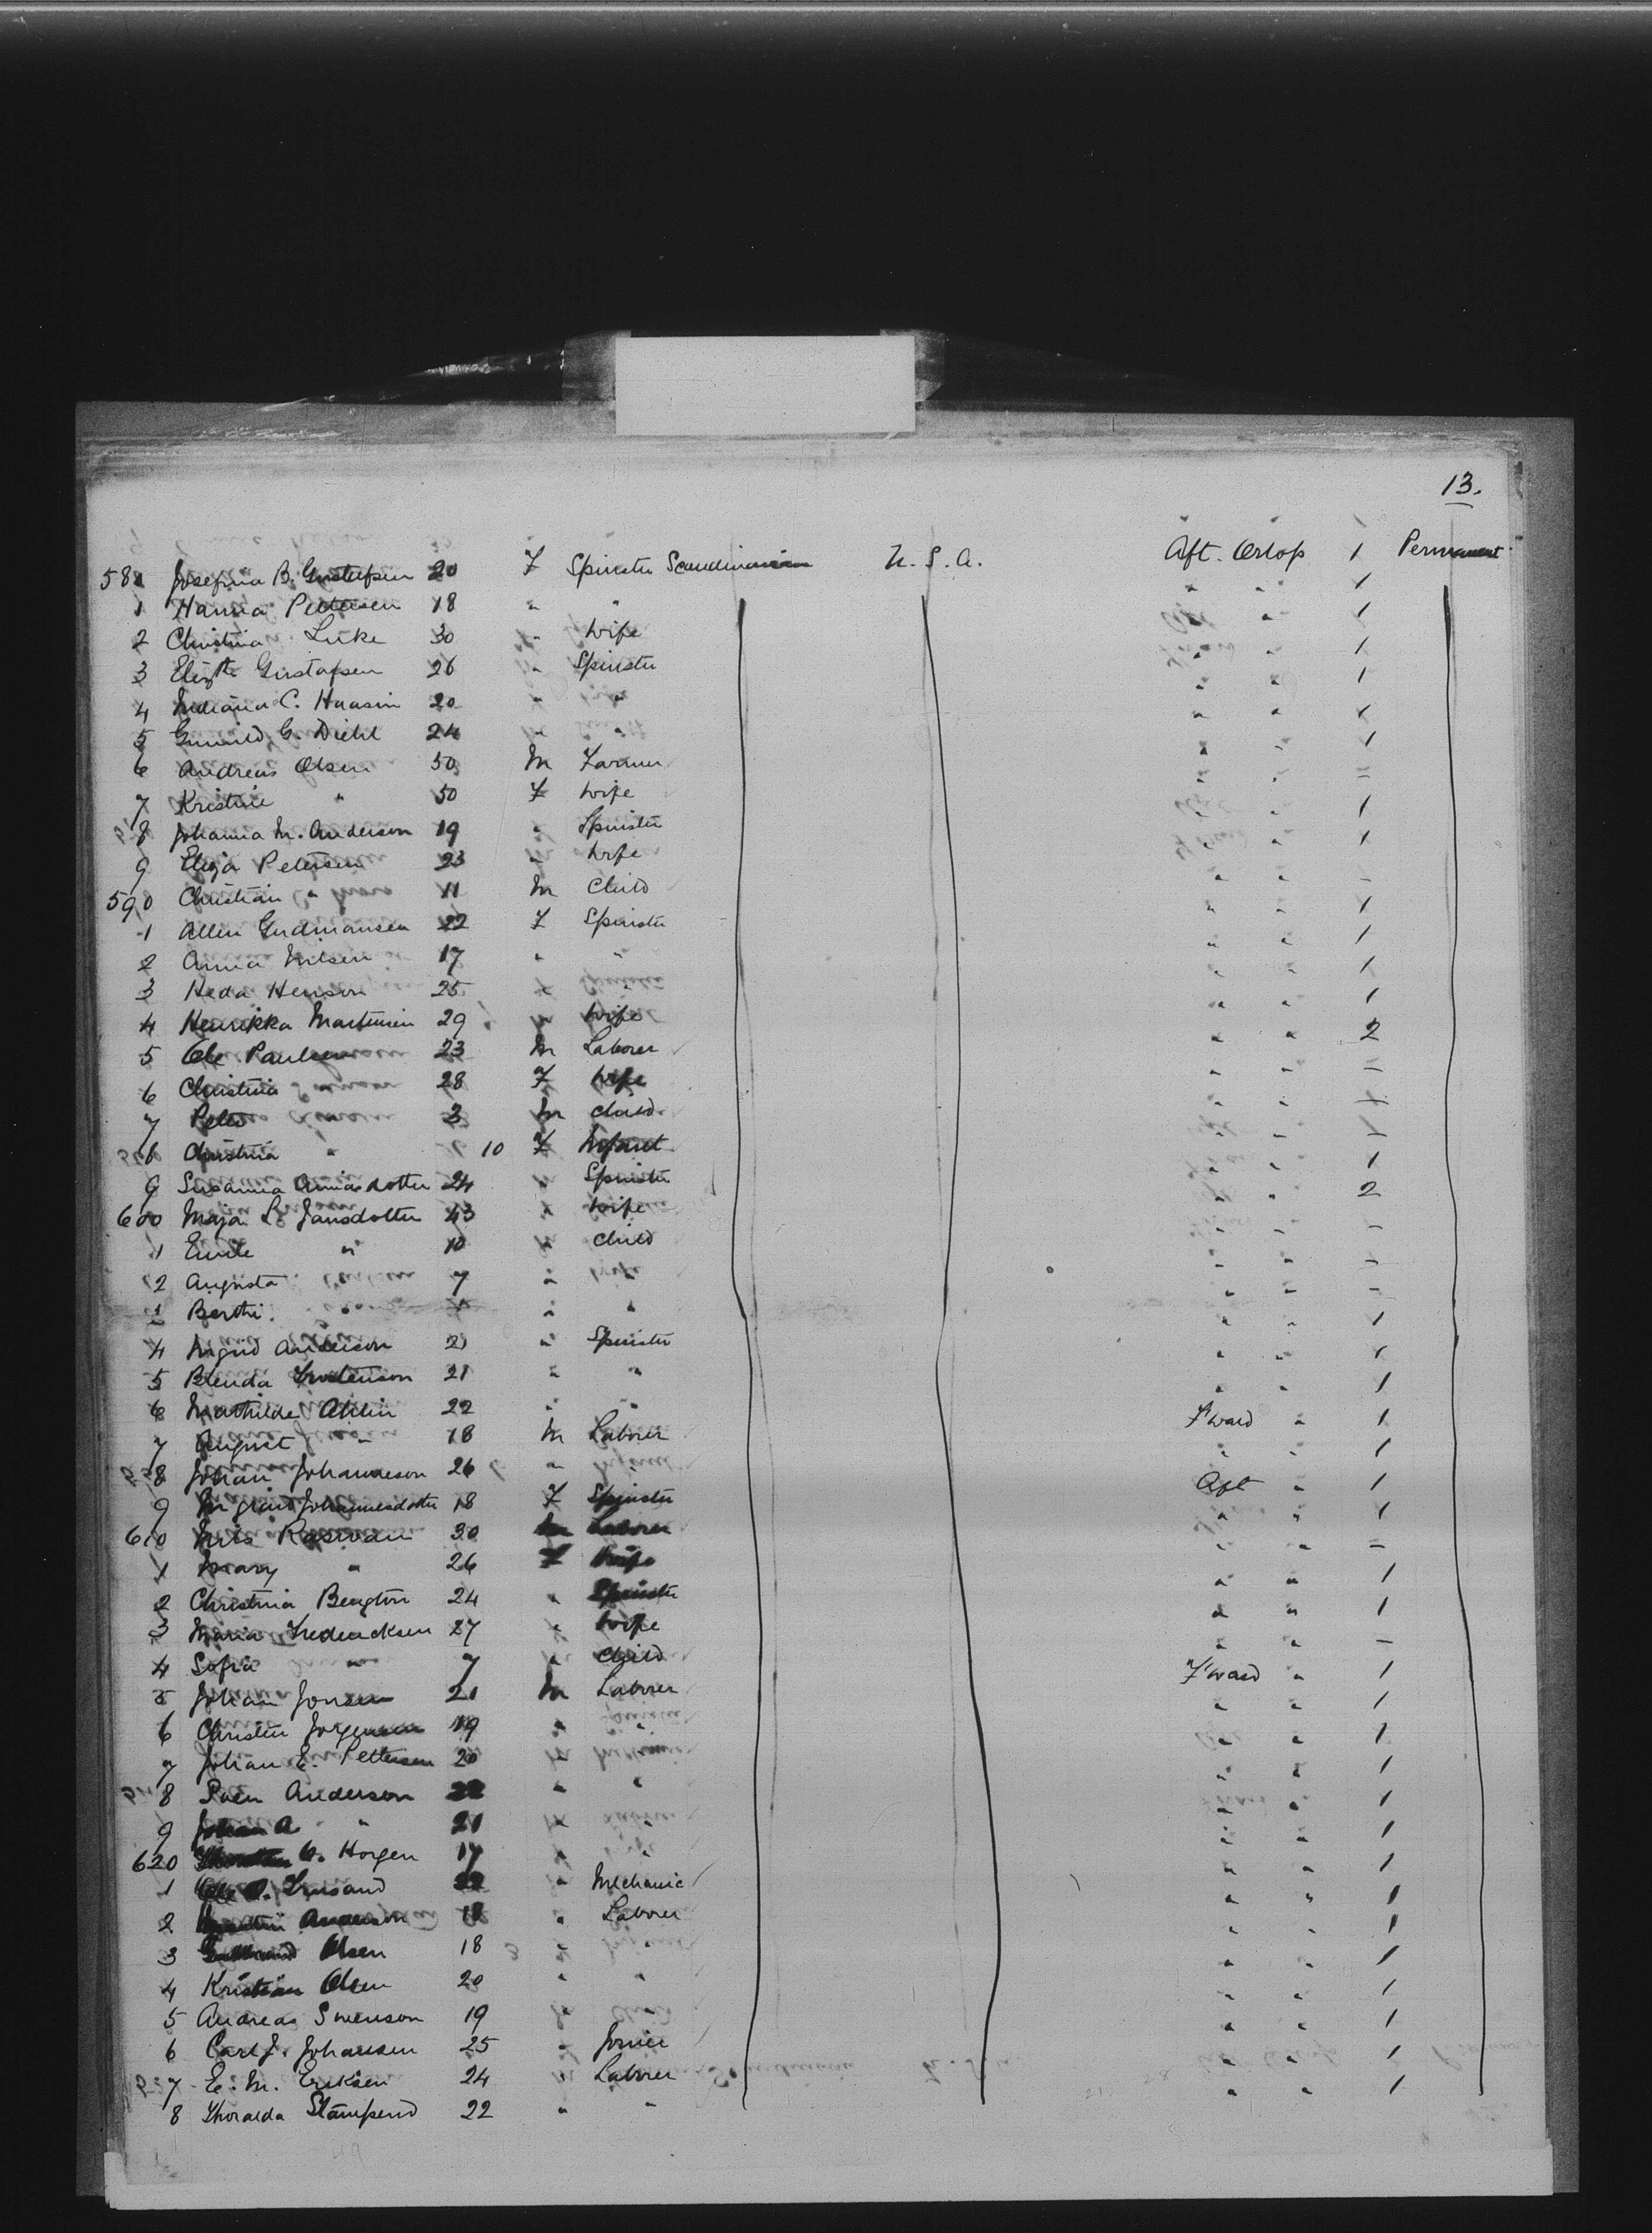 13.
580 Josefina B. Gustafsen 20 F Spinster Scandinavian U. S. A. Aft. Orlop 1 Permanent
1 Hanna Pettersen 18 " " " " 1
2 Christina Luke 30 " Wife " " 1
3 Elizth Gustafsen 26 " Spinster " " 1
4 C. Haasin 20 " " " " 1
5 Gunild G. Diehl 24 " " " " 1
6 Andreas Olsen 50 M Farmer " " 1
7 Kristine " 50 F Wife " " =
8 Johanna M. Anderson 19 " Spinster " " 1
9 Eliza Petersen 23 " Wife " " 1
590 Christian " 11 M Child " " -
1 Allen Gudmansen 22 F Spinster " " 1
2 Anna Nilsen 17 " " " " 1
3 Heda Henson 25 " " " " 1
4 Henrikka Martinsen 29 " Wife " " 1
5 Ole Paulsen 23 M Laborer " " 2
6 Christina 28 F Wife " " =
7 Peter 3 M Child " " -
8 Christina " 10 F Infant " " -
9 Susanna Annasdotter 24 " Spinster " " 1
600 Maja L. Jansdotter 43 " Wife " " 2
1 Emile " 10 " Child " " -
2 Augusta 7 " " " -
3 Berthi " " " " -
4 Ingrid Anderson 21 " Spinster " " 1
5 Blenda 21 " " " " 1
6 Mathilde Ahlin 22 " " " " 1
7 August " 18 M Laborer F'ward " 1
8 Johan Johanneson 26 " " " " 1
9 Johannesdotter 18 F Spinster Aft " 1
610 Nils 30 M Laborer " " 1
1 Mary " 26 F Wife " " =
2 Christina Bengton 24 " Spinster " " 1
3 Maria Fredericksen 27 " Wife " " 1
4 Sofia " 7 " Child " " -
5 Johan Jonsen 21 M Laborer F'ward " 1
6 Christen Jorgensen 19 " " " " 1
7 Johan E. Pettersen 20 " " " " 1
8 Anderson 22 " " " " 1
9 Johan A " 21 " " " " 1
620 Horgen 17 " " " " 1
1 Ole 22 " Mechanic " " 1
2 Anderson 18 " Laborer " " 1
3 Olsen 18 " " " " 1
4 Kristian Olsen 20 " " " " 1
5 Andreas Swenson 19 " " " " 1
6 Carl J. Johansen 25 " Joiner " " 1
7 E. M. Eriksen 24 " Laborer " " 1
8 Thoralda 22 " " " " 1